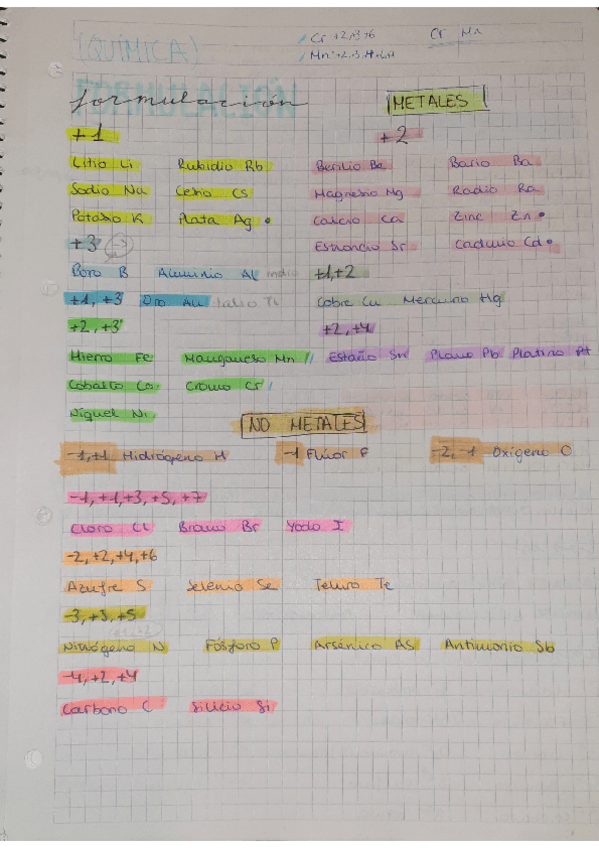 (QUÍMICA) Cr +2+3+6 Cr Mn
Mn +2+3
FORMULACIÓN
formulación METALES
+1 +2
Litio Li Rubidio Rb Berilio Be Bario Ba
Sodio Na Cesio Cs Magnesio Mg Radio Ra
Potasio K Plata Ag • Calcio Ca Zinc Zn •
+3 Estroncio Sr Cadmio Cd •
Boro B Aluminio Al indio +1,+2
+1, +3 Oro Au talio Tl Cobre Cu Mercurio Hg
+2, +3 +2, +4
Hierro Fe Manganeso Mn // Estaño Sn Plomo Pb Platino Pt
Cobalto Co Cromo Cr /
Níquel Ni
NO METALES
-1,+1 Hidrógeno H -1 Flúor F -2, -1 Oxígeno O
-1, +1, +3, +5, +7
Cloro Cl Bromo Br Yodo I
-2, +2, +4, +6
Azufre S Selenio Se Teluro Te
-3, +3, +5
Nitrógeno N Fósforo P Arsénico AS Antimonio Sb
-4, +2, +4
Carbono C Silicio Si